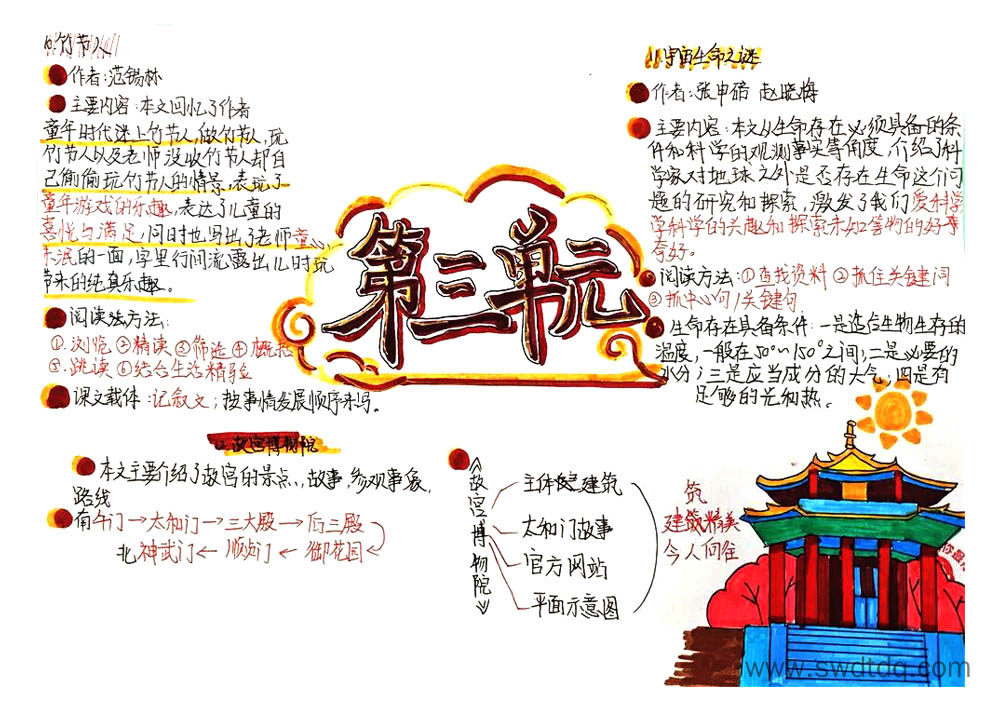 10.竹节人
作者:范锡林
主要内容:本文回忆了作者
童年时代迷上竹节人,做竹节人,玩
竹节人以及老师没收竹节人却自
己偷偷玩竹节人的情景,表现了
童年游戏的乐趣,表达了儿童的
喜悦与满足,同时也写出了老师童心
未泯的一面,字里行间流露出儿时玩
节来的纯真乐趣。
阅读法方法:
①.浏览②精读③筛选④概括
⑤.跳读⑥结合生活精验
课文载体:记叙文;按事情发展顺序来写。
第三单元
11.宇宙生命之谜
作者:张申碚 赵晓梅
主要内容:本文从生命存在必须具备的条
件和科学的观测事实等角度,介绍了科
学家对地球之外是否存在生命这个问
题的研究和探索,激发了我们爱科学
学科学的兴趣和探索未知等物的好
奇好。
阅读方法:①查找资料②抓住关键词
③抓中心句/关键句
生命存在具备条件:一是适合生物生存的
温度,一般在50°~150°之间;二是必要的
水分;三是应当成分的大气;四是有
足够的光和热。
12.故宫博物院
本文主要介绍了故宫的景点、故事,参观事象,
路线
有午门→太和门→三大殿→后三殿
北神武门←顺贞门←御花园←
《故宫博物院》
主体建筑
太和门故事
官方网站
平面示意图
筑
建筑精美
令人向往
www.swdtdq.com